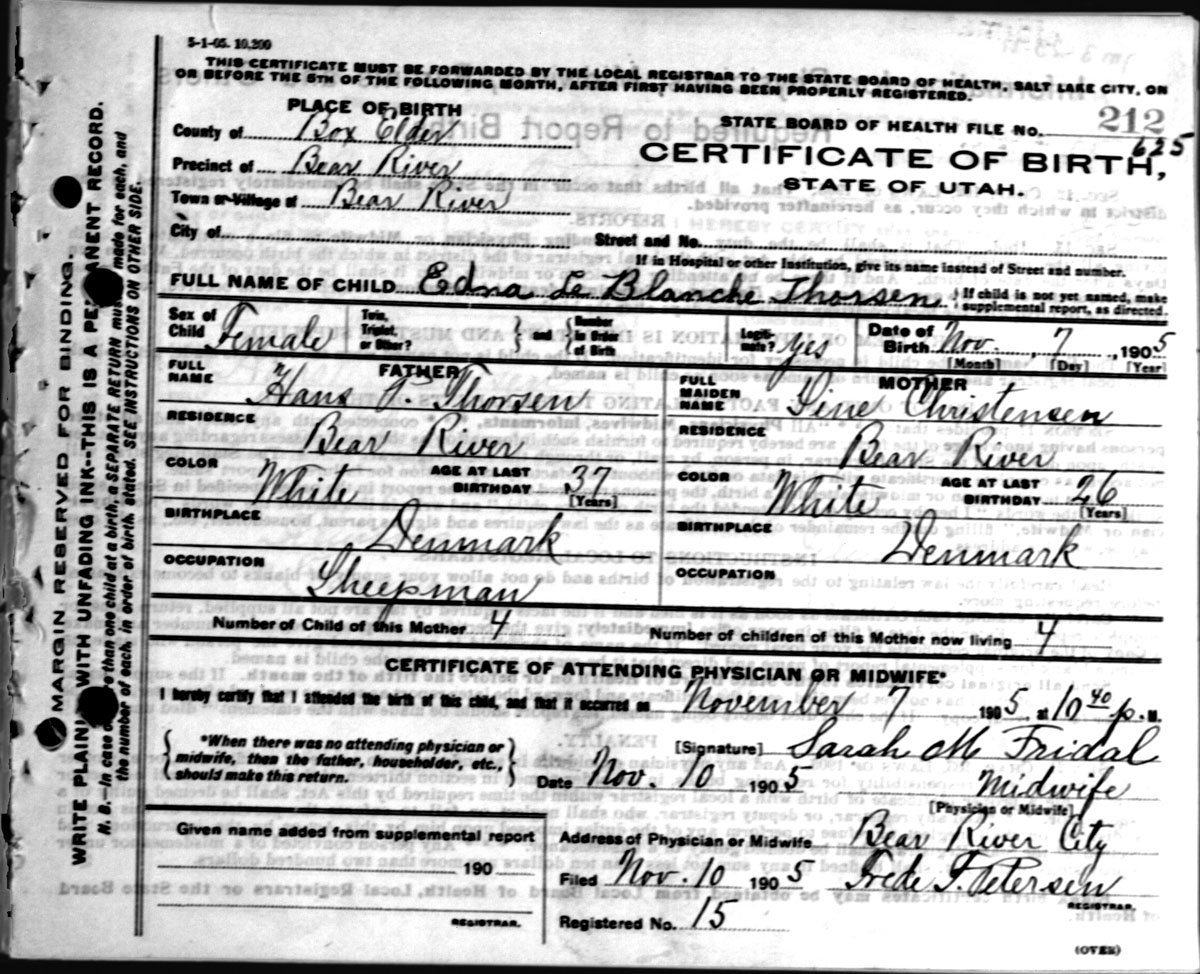 5-1-05. 10,200
THIS CERTIFICATE MUST BE FORWARDED BY THE LOCAL REGISTRAR TO THE STATE BOARD OF HEALTH, SALT LAKE CITY, ON
OR BEFORE THE 5TH OF THE FOLLOWING MONTH, AFTER FIRST HAVING BEEN PROPERLY REGISTERED.
PLACE OF BIRTH
County of Box Elder
Precinct of Bear River
Town or Village of Bear River
City of
STATE BOARD OF HEALTH FILE NO. 212
625
CERTIFICATE OF BIRTH,
STATE OF UTAH.
Street and No.
If in Hospital or other Institution, give its name instead of Street and number.
FULL NAME OF CHILD Edna Le Blanche Thorsen { If child is not yet named, make
supplemental report, as directed.
Sex of Child Female
Twin, Triplet, or Other? } and { Number in Order of Birth
Legitimate? yes
Date of Birth Nov. 7, 1905
[Month] [Day] [Year]
FATHER
FULL NAME Hans P. Thorsen
RESIDENCE Bear River
COLOR White AGE AT LAST BIRTHDAY 37 [Years]
BIRTHPLACE Denmark
OCCUPATION Sheepman
MOTHER
FULL MAIDEN NAME Sine Christensen
RESIDENCE Bear River
COLOR White AGE AT LAST BIRTHDAY 26 [Years]
BIRTHPLACE Denmark
OCCUPATION
Number of Child of this Mother 4 Number of children of this Mother now living 4
CERTIFICATE OF ATTENDING PHYSICIAN OR MIDWIFE*
I hereby certify that I attended the birth of this child, and that it occurred on November 7 1905 at 10 40 p. M.
{ *When there was no attending physician or
midwife, then the father, householder, etc.,
should make this return. }
[Signature] Sarah M Fridal
Date Nov. 10 1905 Midwife
[Physician or Midwife]
Given name added from supplemental report
190
REGISTRAR.
Address of Physician or Midwife Bear River City
Filed Nov. 10 1905 Frede F. Petersen
REGISTRAR.
Registered No. 15
(OVER)
MARGIN RESERVED FOR BINDING.
WRITE PLAINLY WITH UNFADING INK--THIS IS A PERMANENT RECORD.
N. B.--In case of more than one child at a birth, a SEPARATE RETURN must be made for each, and
the number of each, in order of birth, stated. SEE INSTRUCTIONS ON OTHER SIDE.